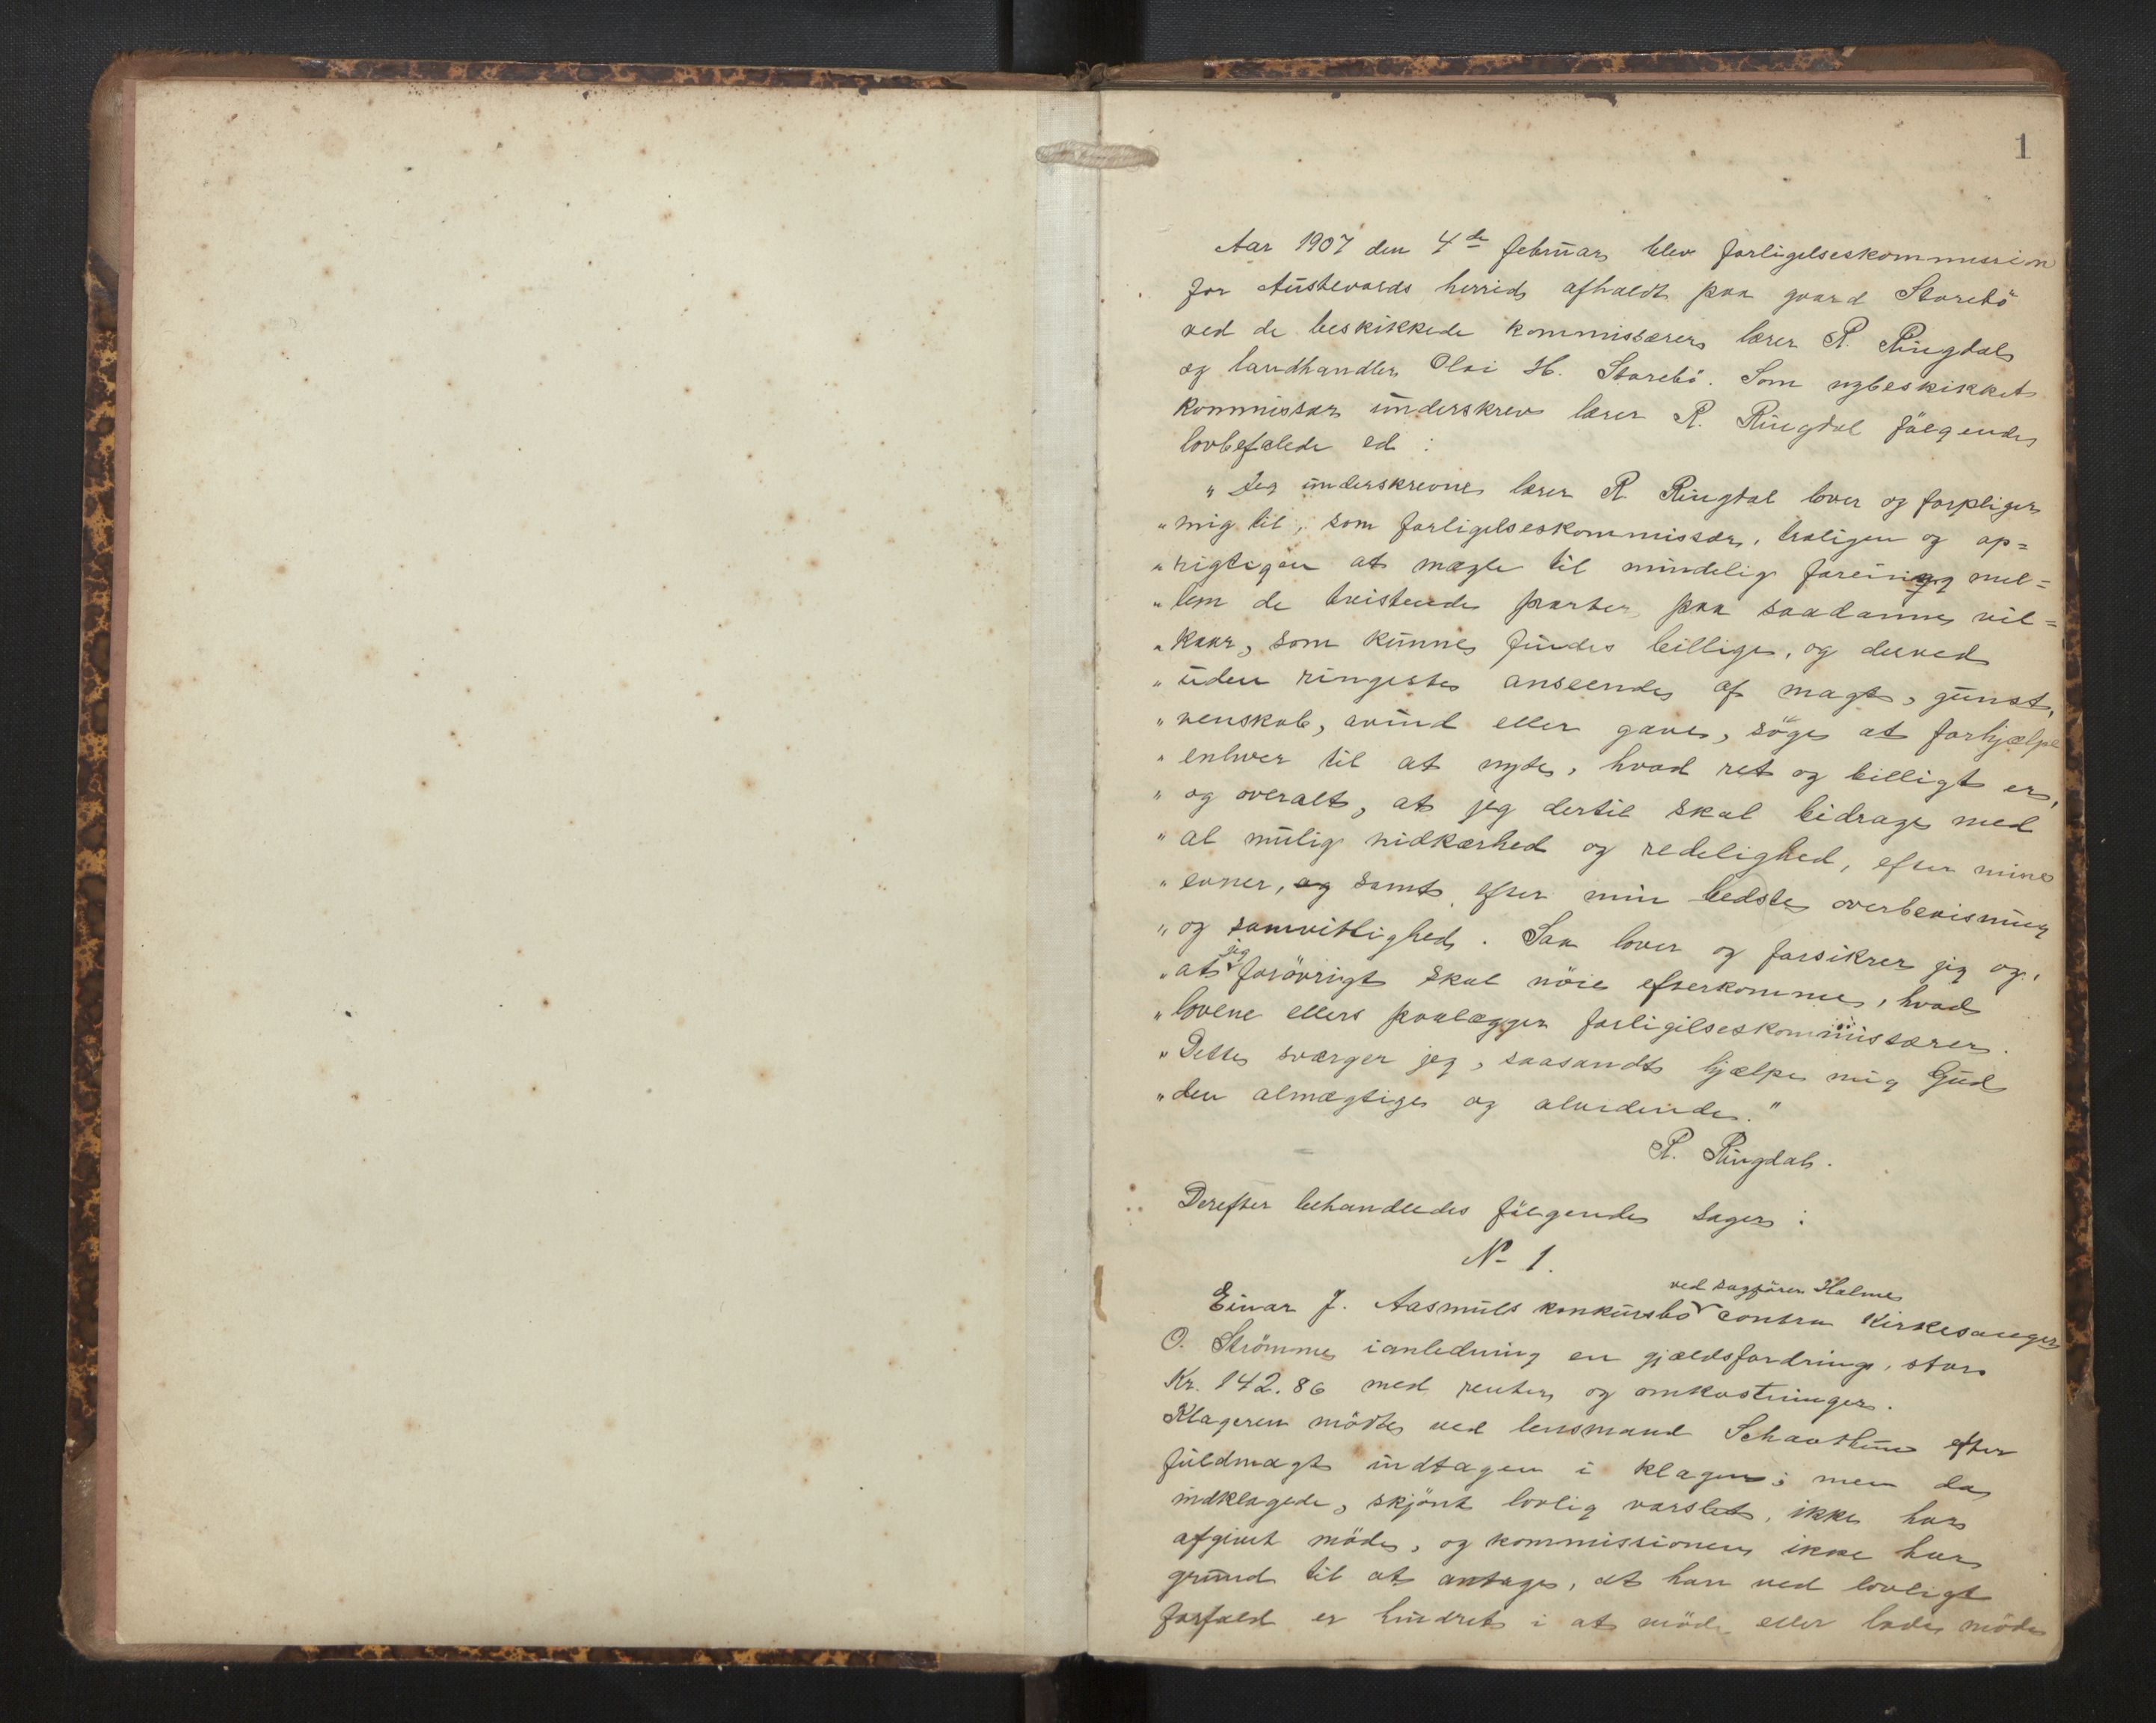 1
Aar 1907 den 4de februar blev forligelseskommission
for Austevolds herred afholdt paa gaard Storebö
ved de beskikkede kommissærer lærer R. Ringdal
og landhandler Olai H. Storebö. Som nybeskikket
kommissær underskrev lærer R. Ringdal fölgende
lovbefalede ed:
"Jeg underskrevne lærer R Ringdal lover og forpligter
"mig til, som forligelseskommissær, troligen og op=
"rigtigen at mægle til mindelig forening mel=
"lem de tvistende parter paa saadanne vil=
"kaar, som kunne findes billige, og derved
"uden ringeste anseende af magt, gunst,
"venskab, avind eller gave, söge at forhjælpe
"enhver til at nyde, hvad ret og billigt er,
"og overalt, at jeg dertil skal bidrage med
"al mulig nidkærhed og redelighed, efter mine
"evner, og samt efter min bedste overbevisning
"og samvittighed. Saa lover og forsikrer jeg og,
"at jeg forövrigt skal nöie efterkomme, hvad
"lovene ellers paalægger forligelseskommissærer.
"Dette sværger jeg, saasandt hjælpe mig Gud
"den almægtige og alvidende."
R. Ringdal.
Derefter behandledes fölgende sager:
No 1.
Einar J. Aasmuls konkursbo ved sagförer Holmes contra Kirkesanger
O. Strömme ianledning en gjældsfordring, stor
Kr. 142.86 med renter og omkostninger.
Klageren mödte ved lensmand efter
fuldmagt indtagen i klagen; men da
indklagede, skjönt lovlig varslet, ikke har
afgivet möde, og kommissionen ikke har
grund til at antage, at han ved lovligt
forfald er hindret i at möde eller lade möde